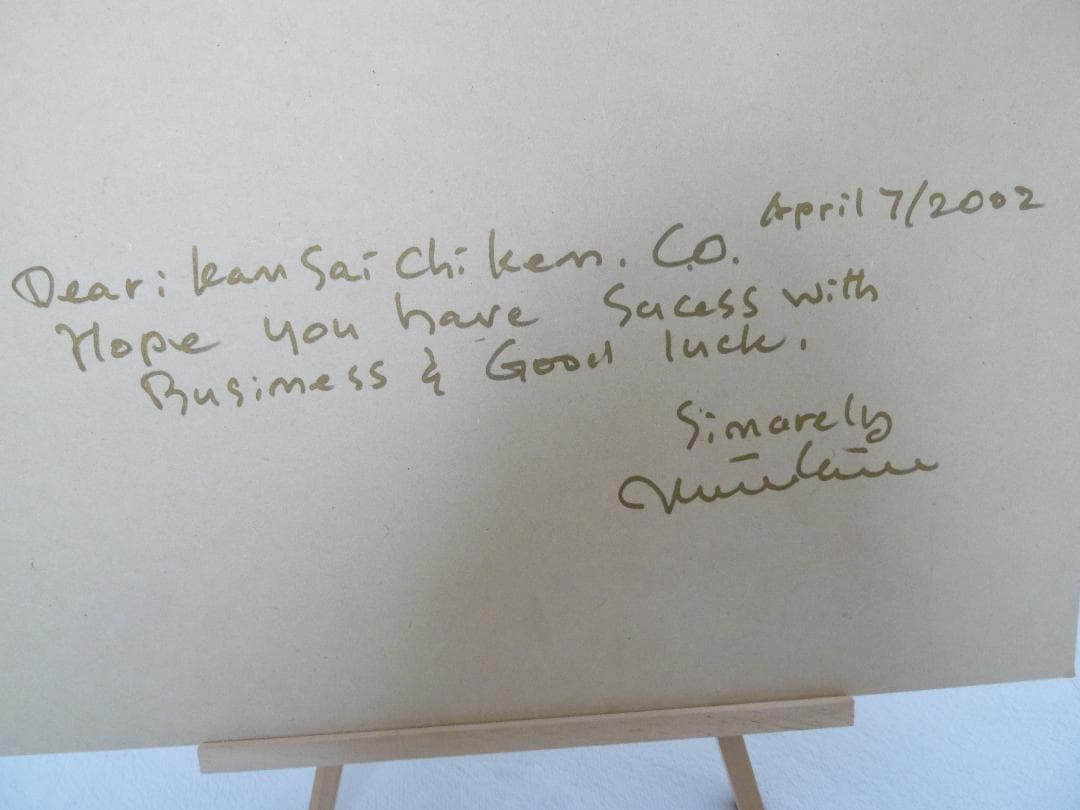 April 7/2002
Dear: kansai Chiken. C.O.
Hope you have Sucess with
Business & Good luck.
Sinarely